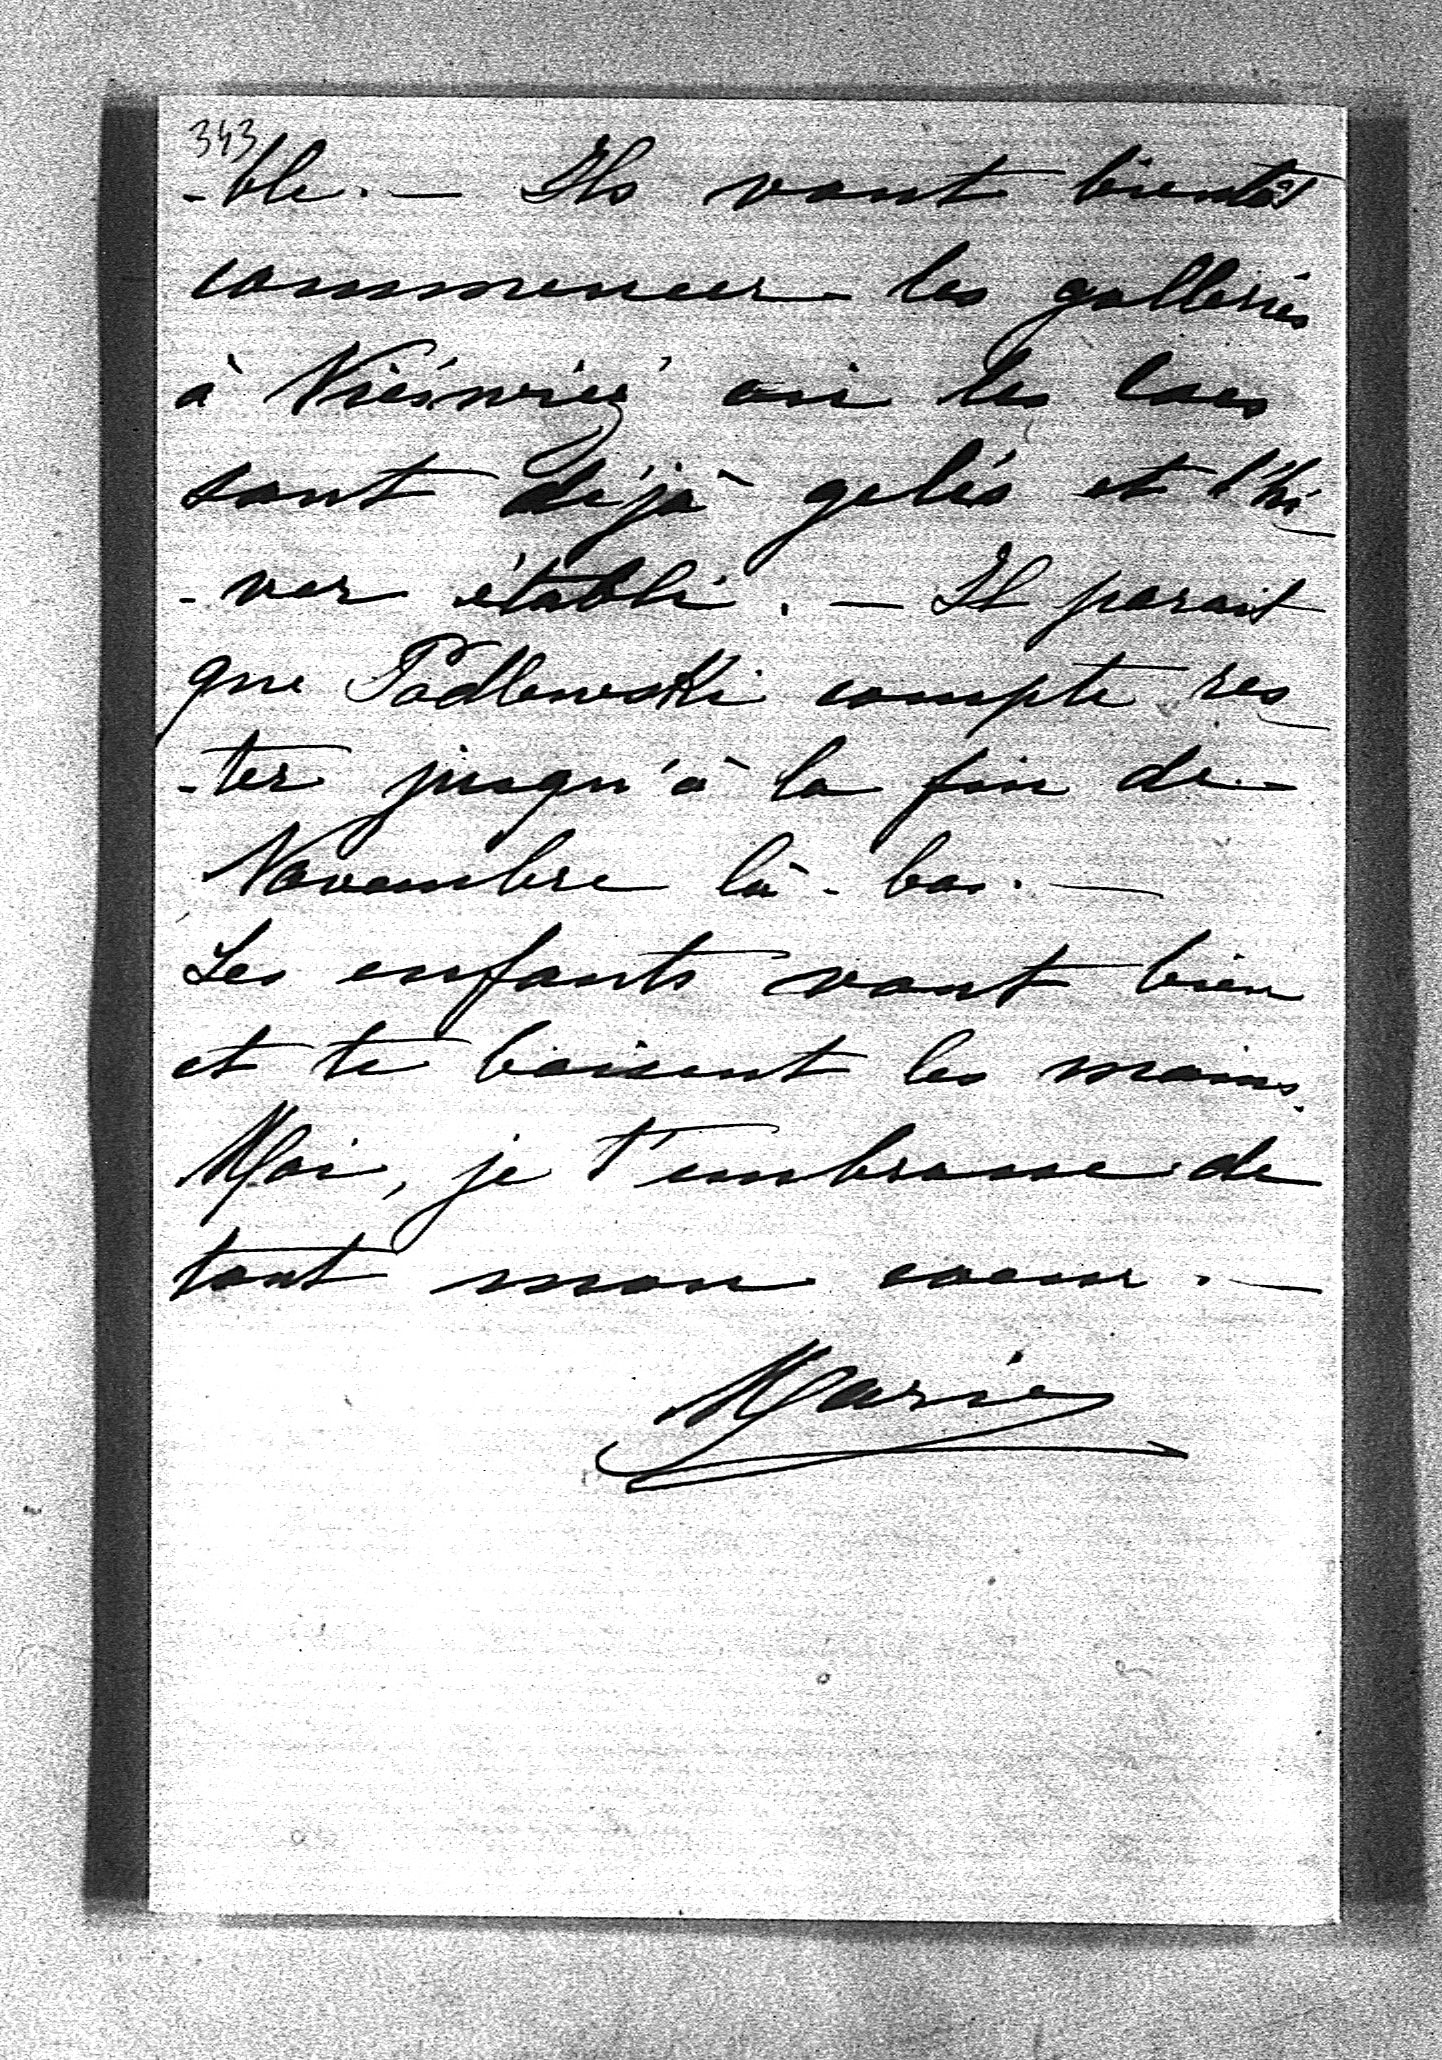 343
-ble. — Ils vont bientôt
commencer les galleries
à où les lacs
sont déjà gelés et l'hi-
-ver établi. — Il parait
que Podlewski compte res-
-ter jusqu'à la fin de
Novembre là-bas. —
Les enfants vont bien
et te baisent les mains.
Moi, je t'embrasse de
tout mon coeur. —
Marie